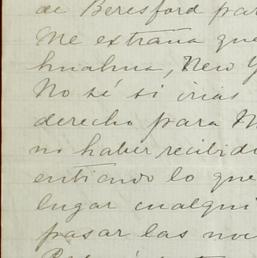 de Beresford par
Me extraña que
huahua, New Y
No sé si irias
derecho para M
no haber recibid
entiendo lo que
lugar cualqui
pasar las no